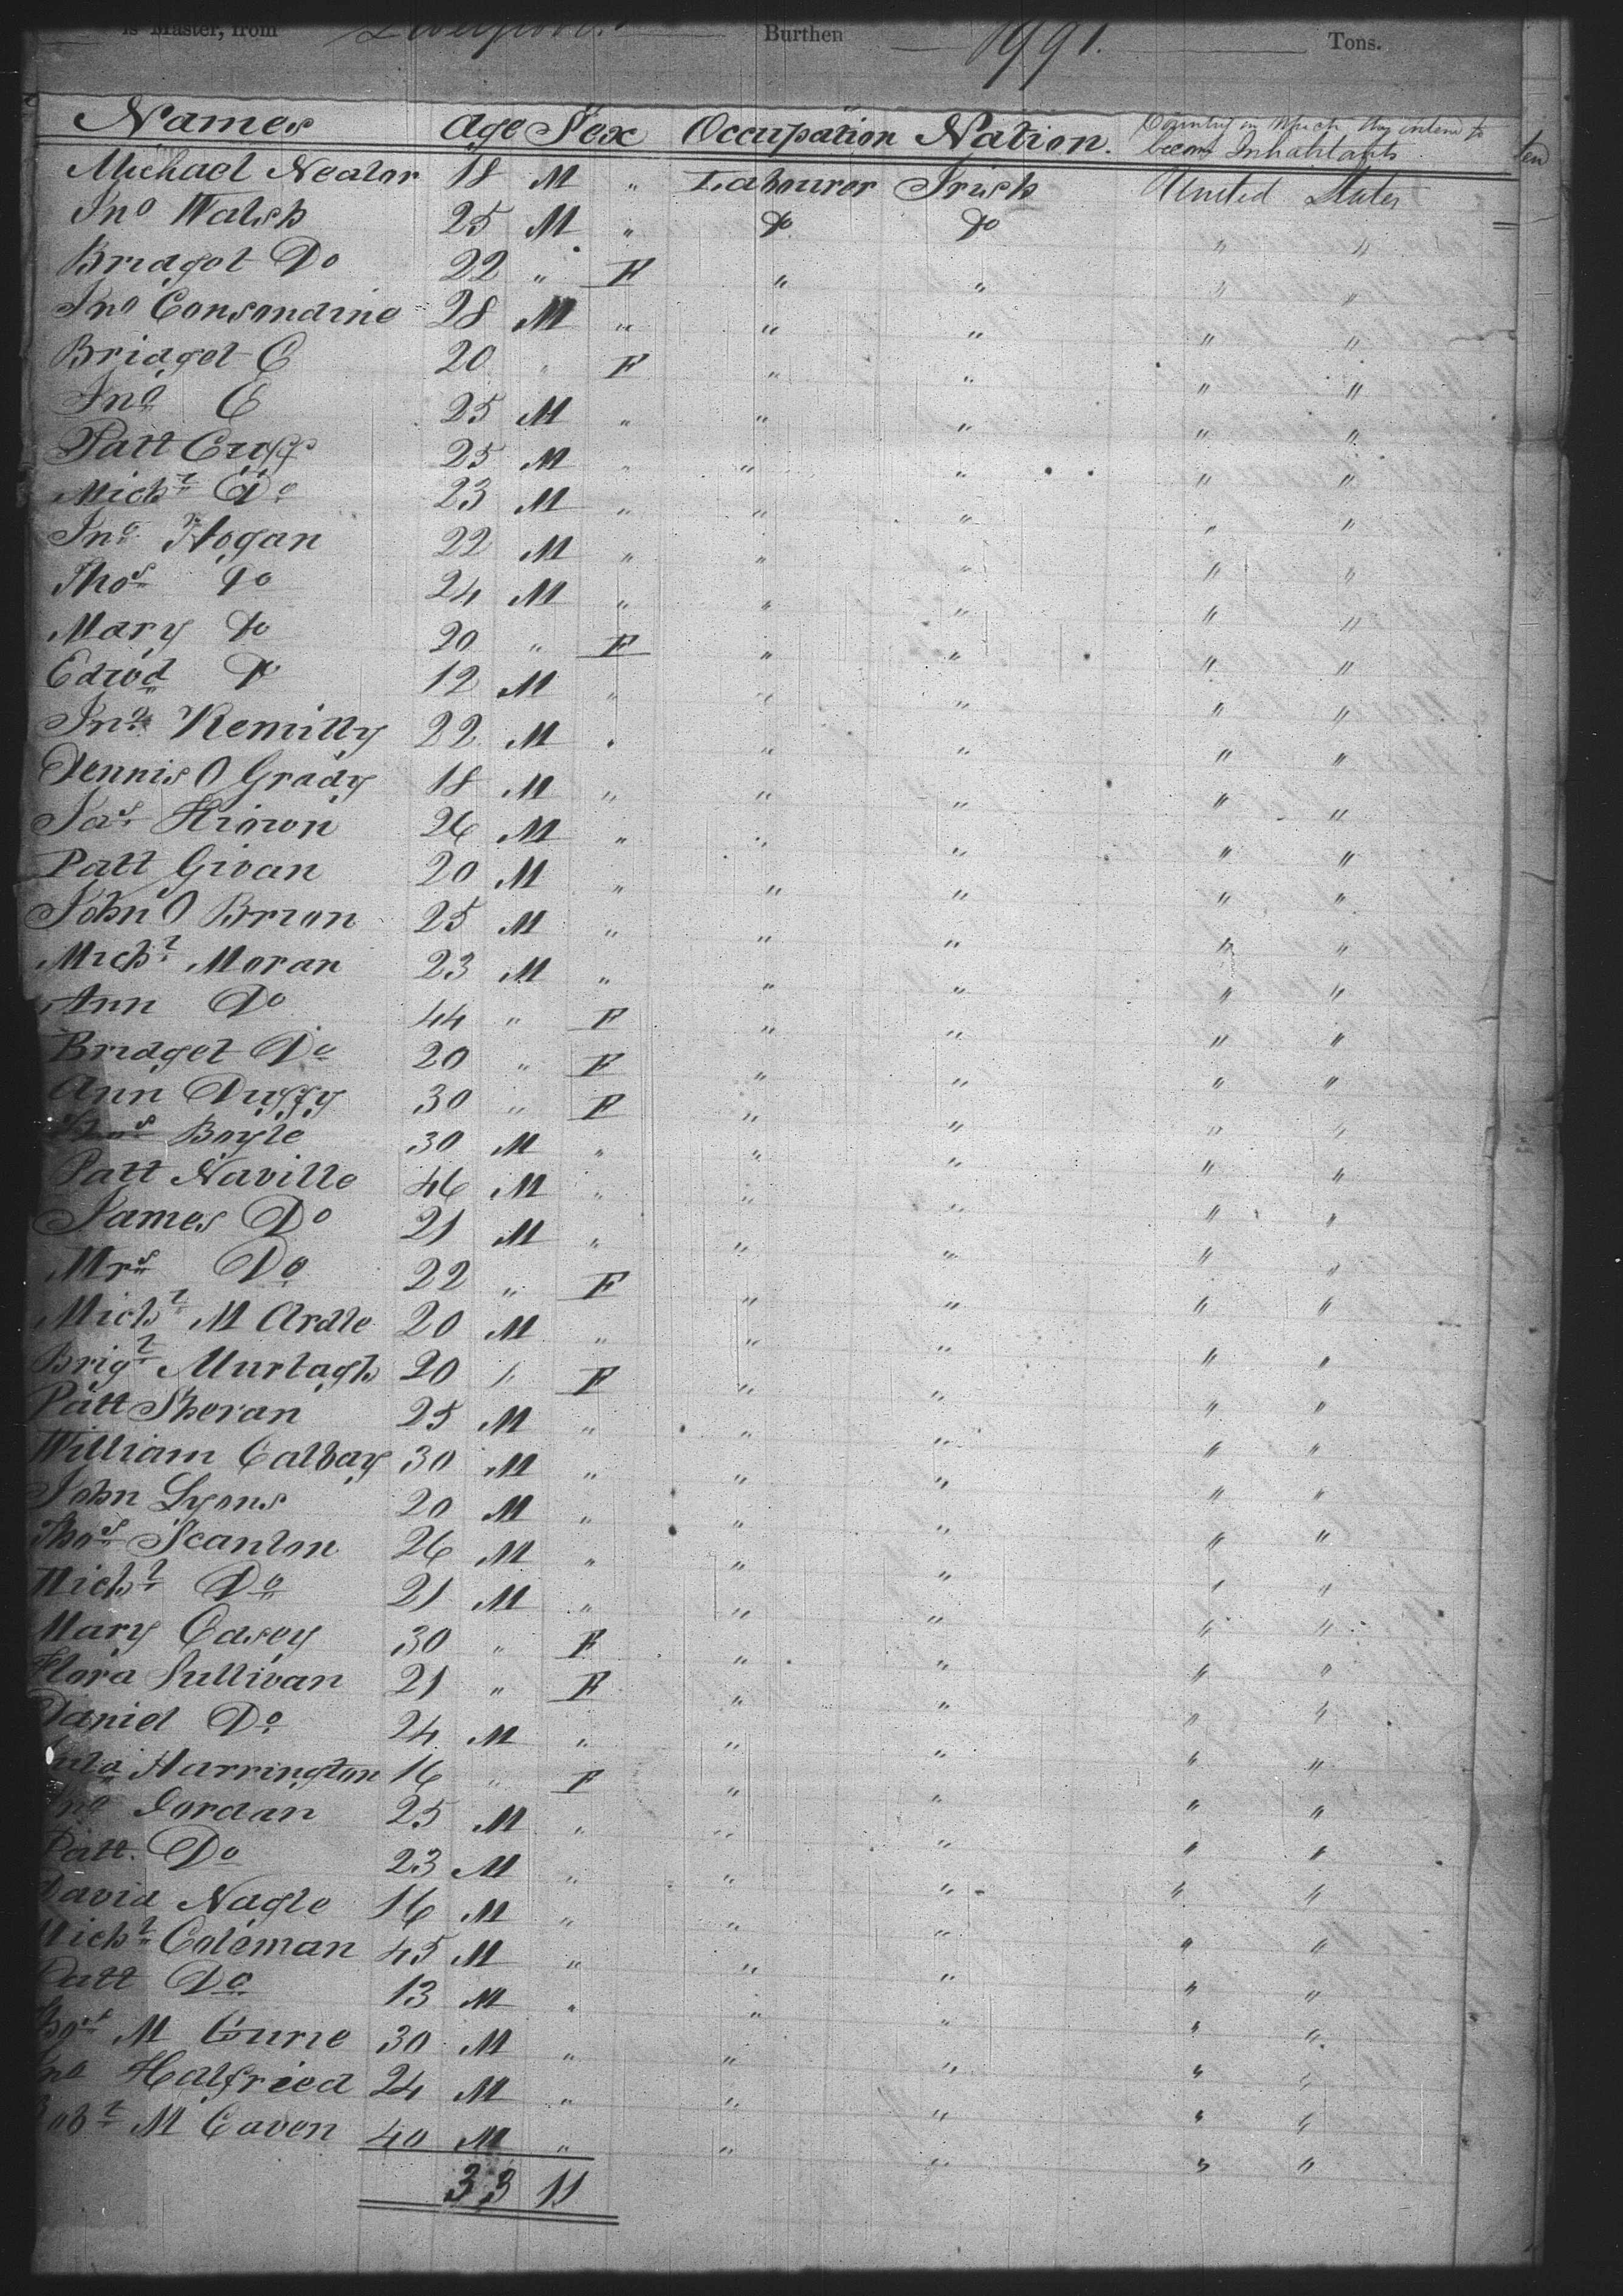 is Master, from Liverpool Burthen 1991. Tons.
Names Age Sex Occupation Nation. Country in Which they intend to
become Inhabitants
Michael Nealon 18 M " Labourer Irish United States
Jno Walsh 25 M " Do Do " "
Bridget Do 22 " F " " " "
Jno Consondine 28 M " " " " "
Bridget C 20 " F " " " "
Jno C 25 M " " " " "
Patt Cuff 25 M " " " " "
Michl Do 23 M " " " " "
Jno Hogan 22 M " " " " "
Thos Do 24 M " " " " "
Mary Do 20 " F " " " "
Edwd Do 12 M " " " " "
Jno Kemilly 22 M " " " " "
Dennis O Grady 18 M " " " " "
Jas Kiown 26 M " " " " "
Patt Givan 20 M " " " " "
John O Brion 25 M " " " " "
Michl Moran 23 M " " " " "
Ann Do 44 " F " " " "
Bridget Do 20 " F " " " "
Ann Duffy 30 " F " " " "
Thos Boyle 30 M " " " " "
Patt Naville 46 M " " " " "
James Do 21 M " " " " "
Mrs Do 22 " F " " " "
Michl M Ardle 20 M " " " " "
Brigt Murtagh 20 " F " " " "
Patt Sheran 25 M " " " " "
William Calbay 30 M " " " " "
John Lyons 20 M " " " " "
Thos Scanlon 26 M " " " " "
Michl Do 21 M " " " " "
Mary Casey 30 " F " " " "
Flora Sullivan 21 " F " " " "
Daniel Do 24 M " " " " "
Harrington 16 " F " " " "
Jno Jordan 25 M " " " " "
Patt. Do 23 M " " " " "
David Nagle 16 M " " " " "
Michl Coleman 45 M " " " " "
Patt Do 13 M " " " " "
Thos M Gurie 30 M " " " " "
Jno Halfried 24 M " " " " "
Robt M Caven 40 M " " " " "
33 11